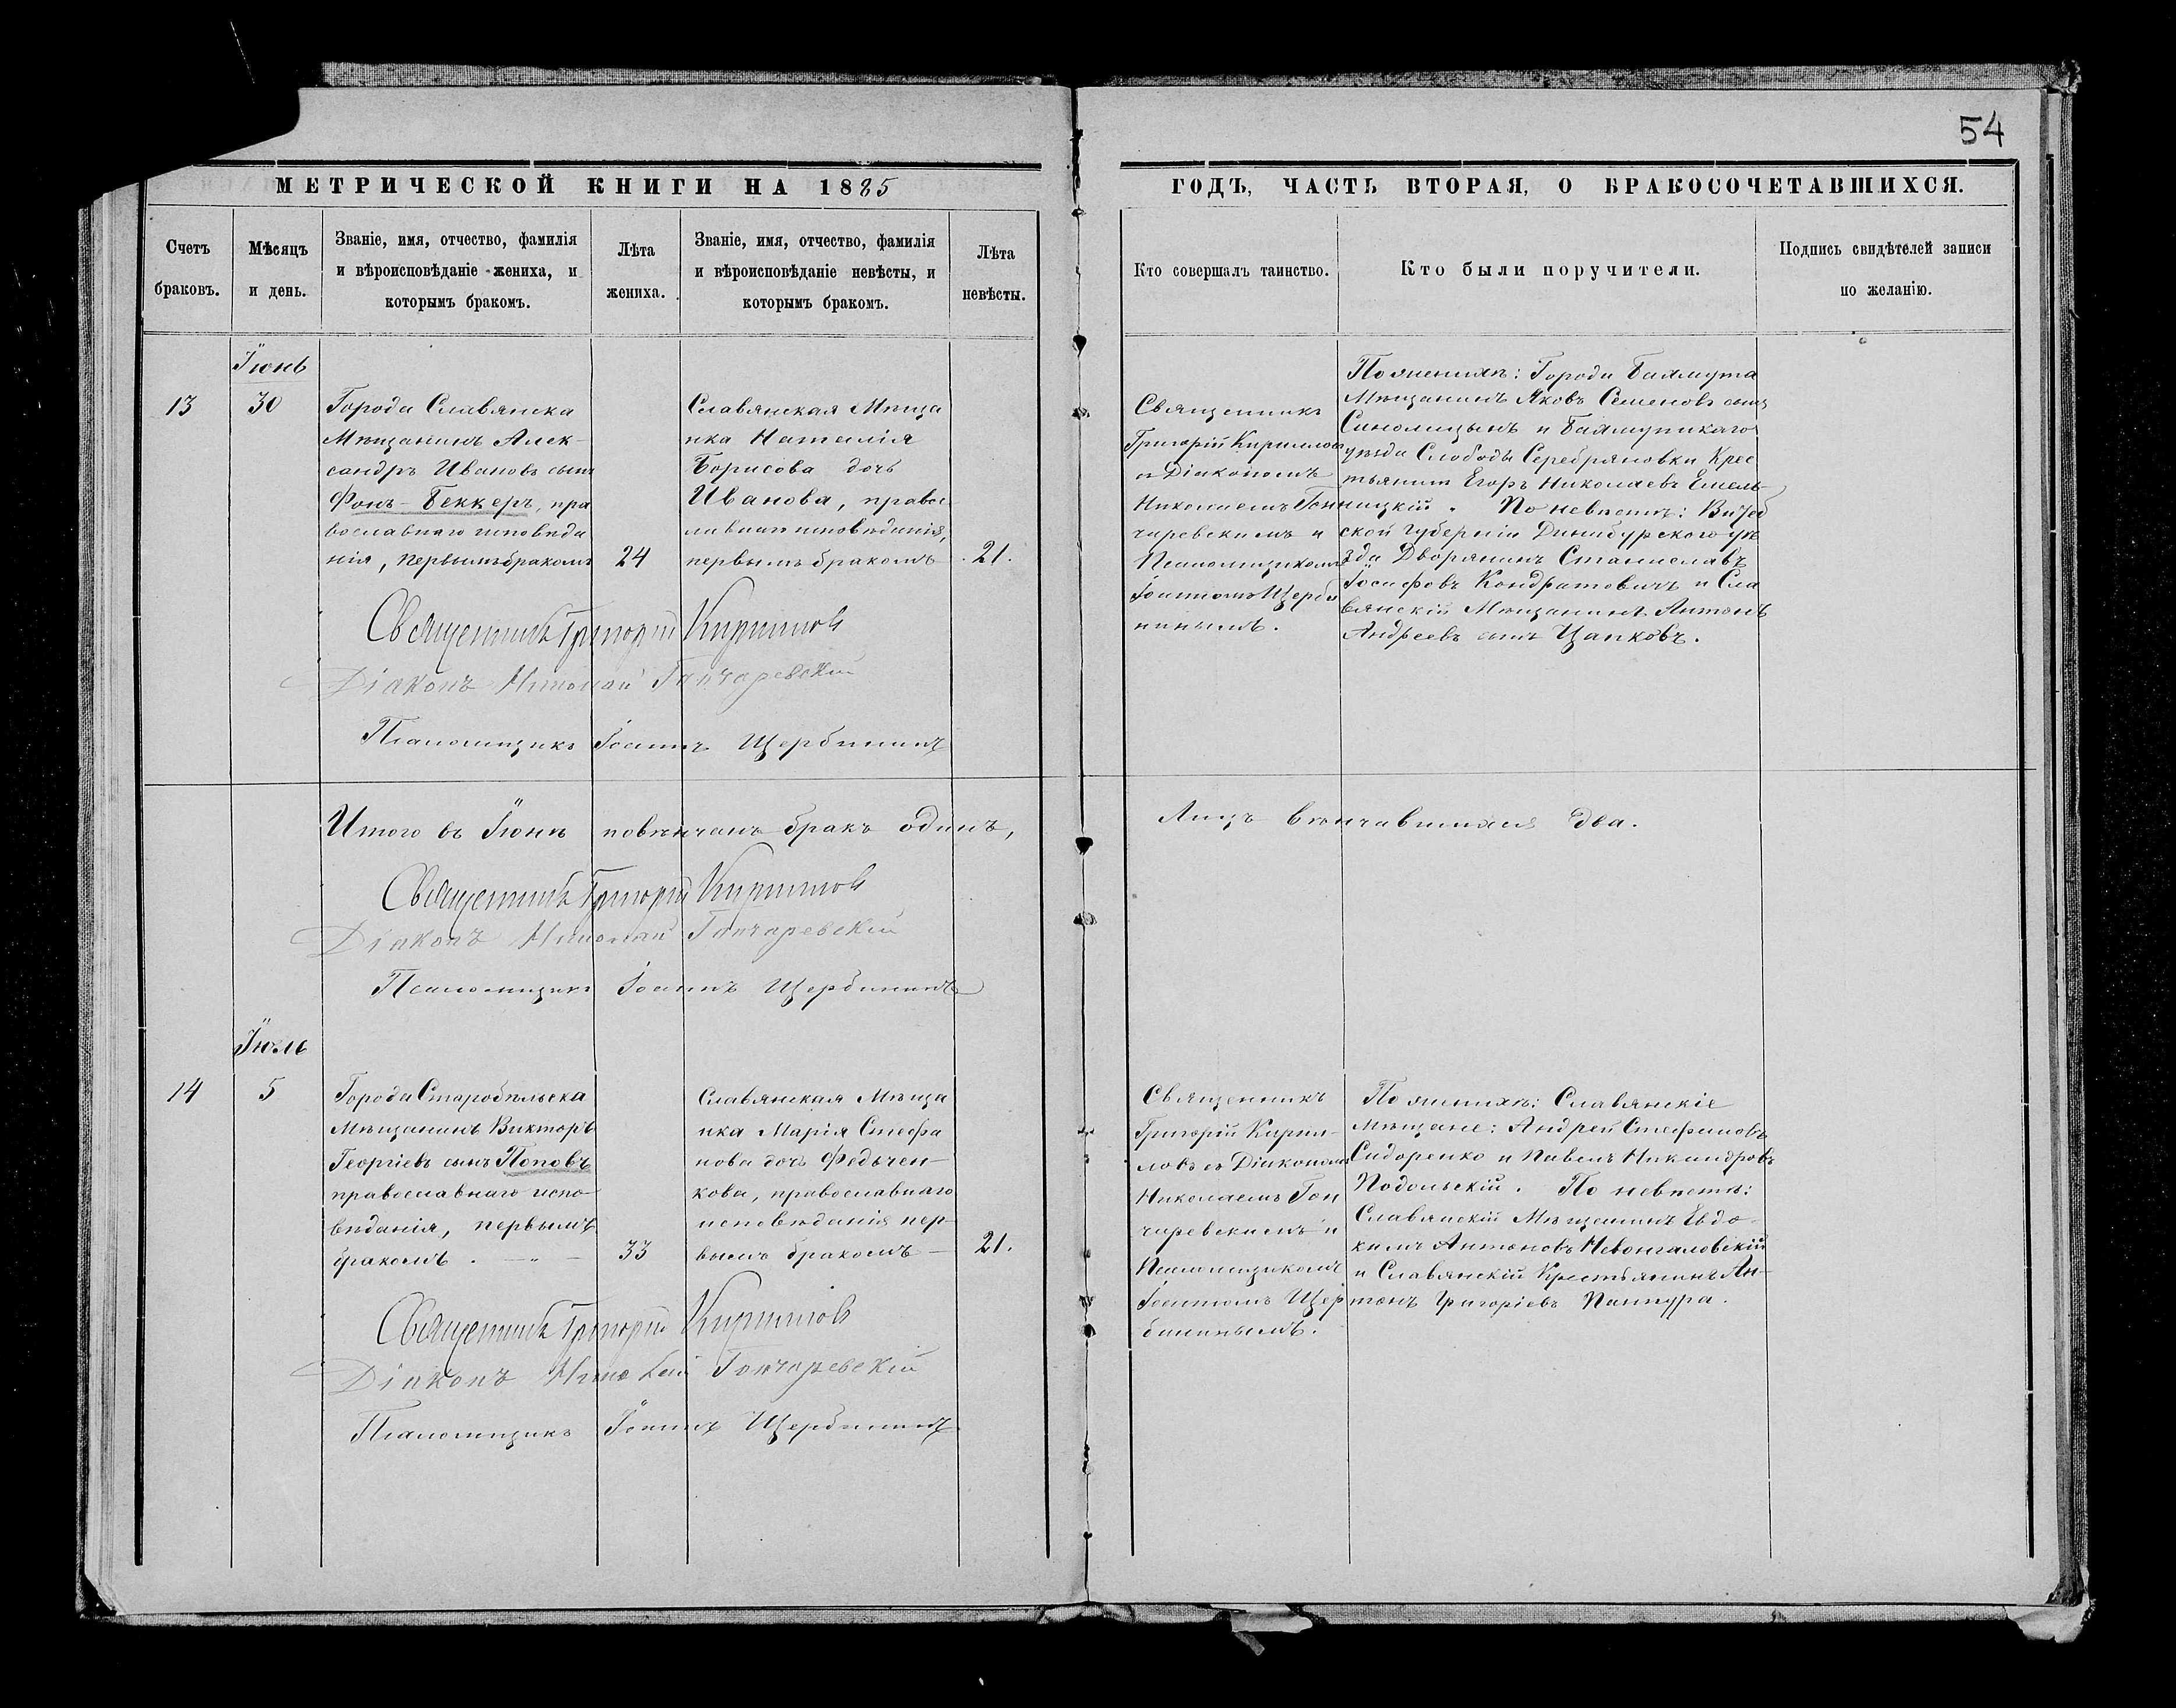 54
МЕТРИЧЕСКОЙ КНИГИ НА 1885
ГОДЪ, ЧАСТЬ ВТОРАЯ, О БРАКОСОЧЕТАВШИХСЯ.
Счетъ
браковъ.
Мѣсяцъ
и день.
Званіе, имя, отчество, фамилія
и вѣроисповѣданіе жениха, и
которымъ бракомъ.
Лѣта
жениха.
Званіе, имя, отчество, фамилія
и вѣроисповѣданіе невѣсты, и
которымъ бракомъ.
Лѣта
невѣсты.
Кто совершалъ таинство.
Кто были поручители.
Подпись свидѣтелей записи
по желанію.
Іюнь
13
30
Города Славянска
Мѣщанинъ Алек-
сандръ Ивановъ сынъ
Фонъ-Беккеръ, пра
вославнаго исповѣда
нія, первымъ бракомъ
24
Славянская Мѣща
нка Наталія
Борисова дочь
Иванова, правос
лавнаго исповѣданія,
первымъ бракомъ
21.
Священникъ
Григорій Кирилловъ
съ Діакономъ
Николаемъ Гон
чаревскимъ и
Псаломщикомъ
Іоанномъ Щерби
нинымъ.
По женихѣ: Города Бахмута
Мѣщанинъ Яковъ Семеновъ сынъ
и Бахмутскаго
уѣзда Слободы Серебряновки Крес
тьянинъ Егоръ Николаевъ Емель-
ницкій. По невѣстѣ: Витеб
ской Губерніи Динабурскаго уѣ
зда Дворянинъ Станиславъ
Іосифовъ Кондратовичъ и Сла
вянскій Мѣщанинъ Антонъ
Андреевъ сынъ Цапковъ.
Священникъ Григорій Кирилловъ
Діаконъ Николай Гончаревскій
Псаломщикъ Іоаннъ Щербининъ
Итого въ Іюнѣ повѣнчанъ бракъ одинъ,
Лицъ вѣнчавшихся два.
Священникъ Григорій Кирилловъ
Діаконъ Николай Гончаревскій
Псаломщикъ Іоаннъ Щербининъ
Іюль
14
5
Города Старобѣльска
Мѣщанинъ Викторъ
Георгіевъ сынъ Поповъ
православнаго испо-
вѣданія, первымъ
бракомъ.
33
Славянская Мѣща
нка Марія Стефа
нова дочь Федычен-
кова, православнаго
исповѣданія пер-
вымъ бракомъ
21.
Священникъ
Григорій Кирил-
ловъ съ Діакономъ
Николаемъ Гон
чаревскимъ и
Псаломщикомъ
Іоанномъ Щер
бининымъ.
По женихѣ: Славянскіе
Мѣщане: Андрей Стефановъ
Сидоренко и Павелъ Никандровъ
Подольскій. По невѣстѣ:
Славянскій Мѣщанинъ Евдо-
кимъ Антоновъ
и Славянскій Крестьянинъ Ан-
тонъ Григоріевъ
Священникъ Григорій Кирилловъ
Діаконъ Николай Гончаревскій
Псаломщикъ Іоаннъ Щербининъ